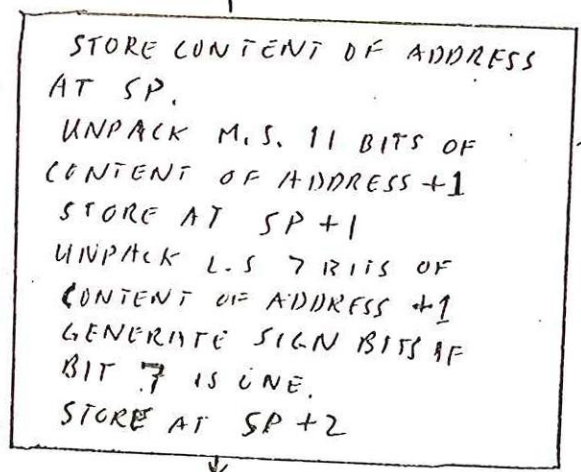 STORE CONTENT OF ADDRESS
AT SP.
UNPACK M.S. 11 BITS OF
CONTENT OF ADDRESS +1
STORE AT SP+1
UNPACK L.S 7 BITS OF
CONTENT OF ADDRESS +1
GENERATE SIGN BITS IF
BIT 7 IS ONE.
STORE AT SP+2